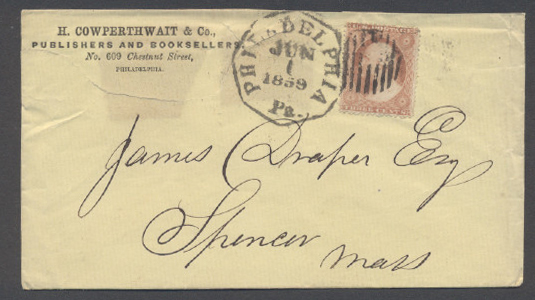 H. COWPERTHWAIT & Co.,
PUBLISHERS AND BOOKSELLERS,
No. 609 Chestnut Street,
PHILADELPHIA.
PHILADELPHIA
JUN
1
1859
Pa.
THREE CENTS
James Draper Esq
Spencer
Mass